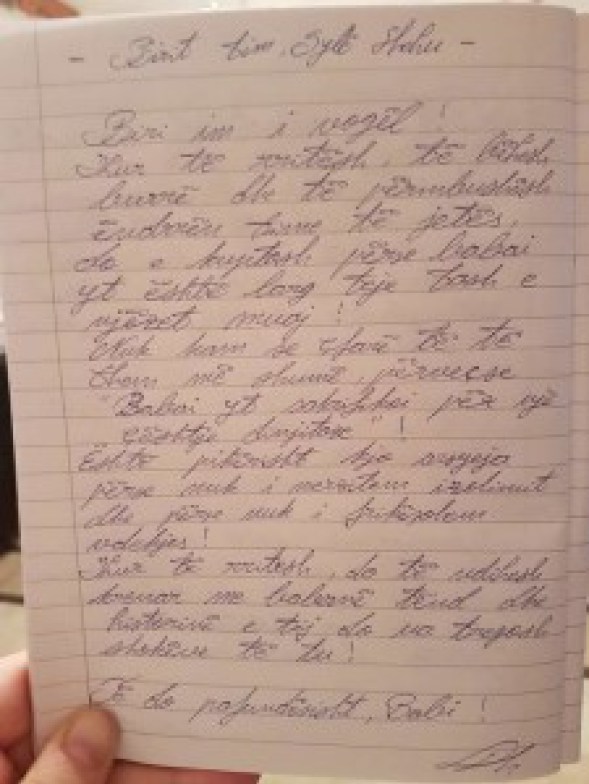 - Birit tim, Sylë Hoxhu -
Biri im i vogël !
Kur të rritësh, të bëhesh
burrë dhe të përmbushësh
ëndrrën time të jetës,
do e kuptosh përse babai
yt është larg teje tash e
njëzet muaj !
Nuk kam se çfarë të të
them më shumë, përveçse
"Babai yt sakrifikoi për një
çështje hyjnore" !
Është pikërisht kjo arsyeja
përse nuk i nervozitem izolimit
dhe përse nuk i frikësohem
vdekjes !
Kur të rritesh, do të ndihesh
krenar me babanë tënd dhe
historinë e tij do ua tregosh
shokëve të tu !
Të do pafundësisht, Babi !